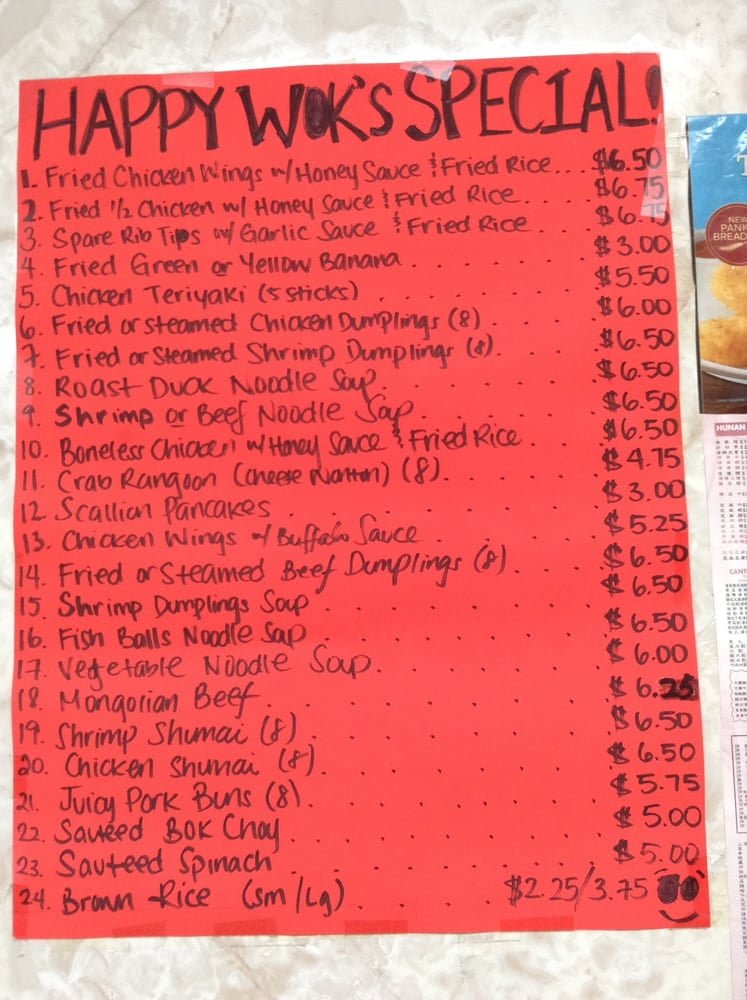 HAPPY WOK'S SPECIAL!
1. Fried Chicken Wings w/ Honey Sauce & Fried Rice... $6.50
2. Fried 1/2 Chicken w/ Honey Sauce & Fried Rice. $6.75
3. Spare Rib Tips w/ Garlic Sauce & Fried Rice.. $6.75
4. Fried Green or Yellow Banana....... $3.00
5. Chicken Teriyaki (5 sticks)....... $5.50
6. Fried or Steamed Chicken Dumplings (8)..... $6.00
7. Fried or Steamed Shrimp Dumplings (8).... $6.50
8. Roast Duck Noodle Soup...... $6.50
9. Shrimp or Beef Noodle Soup..... $6.50
10. Boneless Chicken w/ Honey Sauce & Fried Rice.. $6.50
11. Crab Rangoon (Cheese Wonton) (8)..... $4.75
12. Scallion Pancakes....... $3.00
13. Chicken Wings w/ Buffalo Sauce.... $5.25
14. Fried or Steamed Beef Dumplings (8)... $6.50
15. Shrimp Dumplings Soup...... $6.50
16. Fish Balls Noodle Soup...... $6.50
17. Vegetable Noodle Soup...... $6.00
18. Mongorian Beef....... $6.25
19. Shrimp Shumai (8)...... $6.50
20. Chicken Shumai (8)...... $6.50
21. Juicy Pork Buns (8)...... $5.75
22. Sauteed Bok Choy...... $5.00
23. Sauteed Spinach....... $5.00
24. Brown Rice (sm/Lg).... $2.25/3.75
NEW
HUNAN